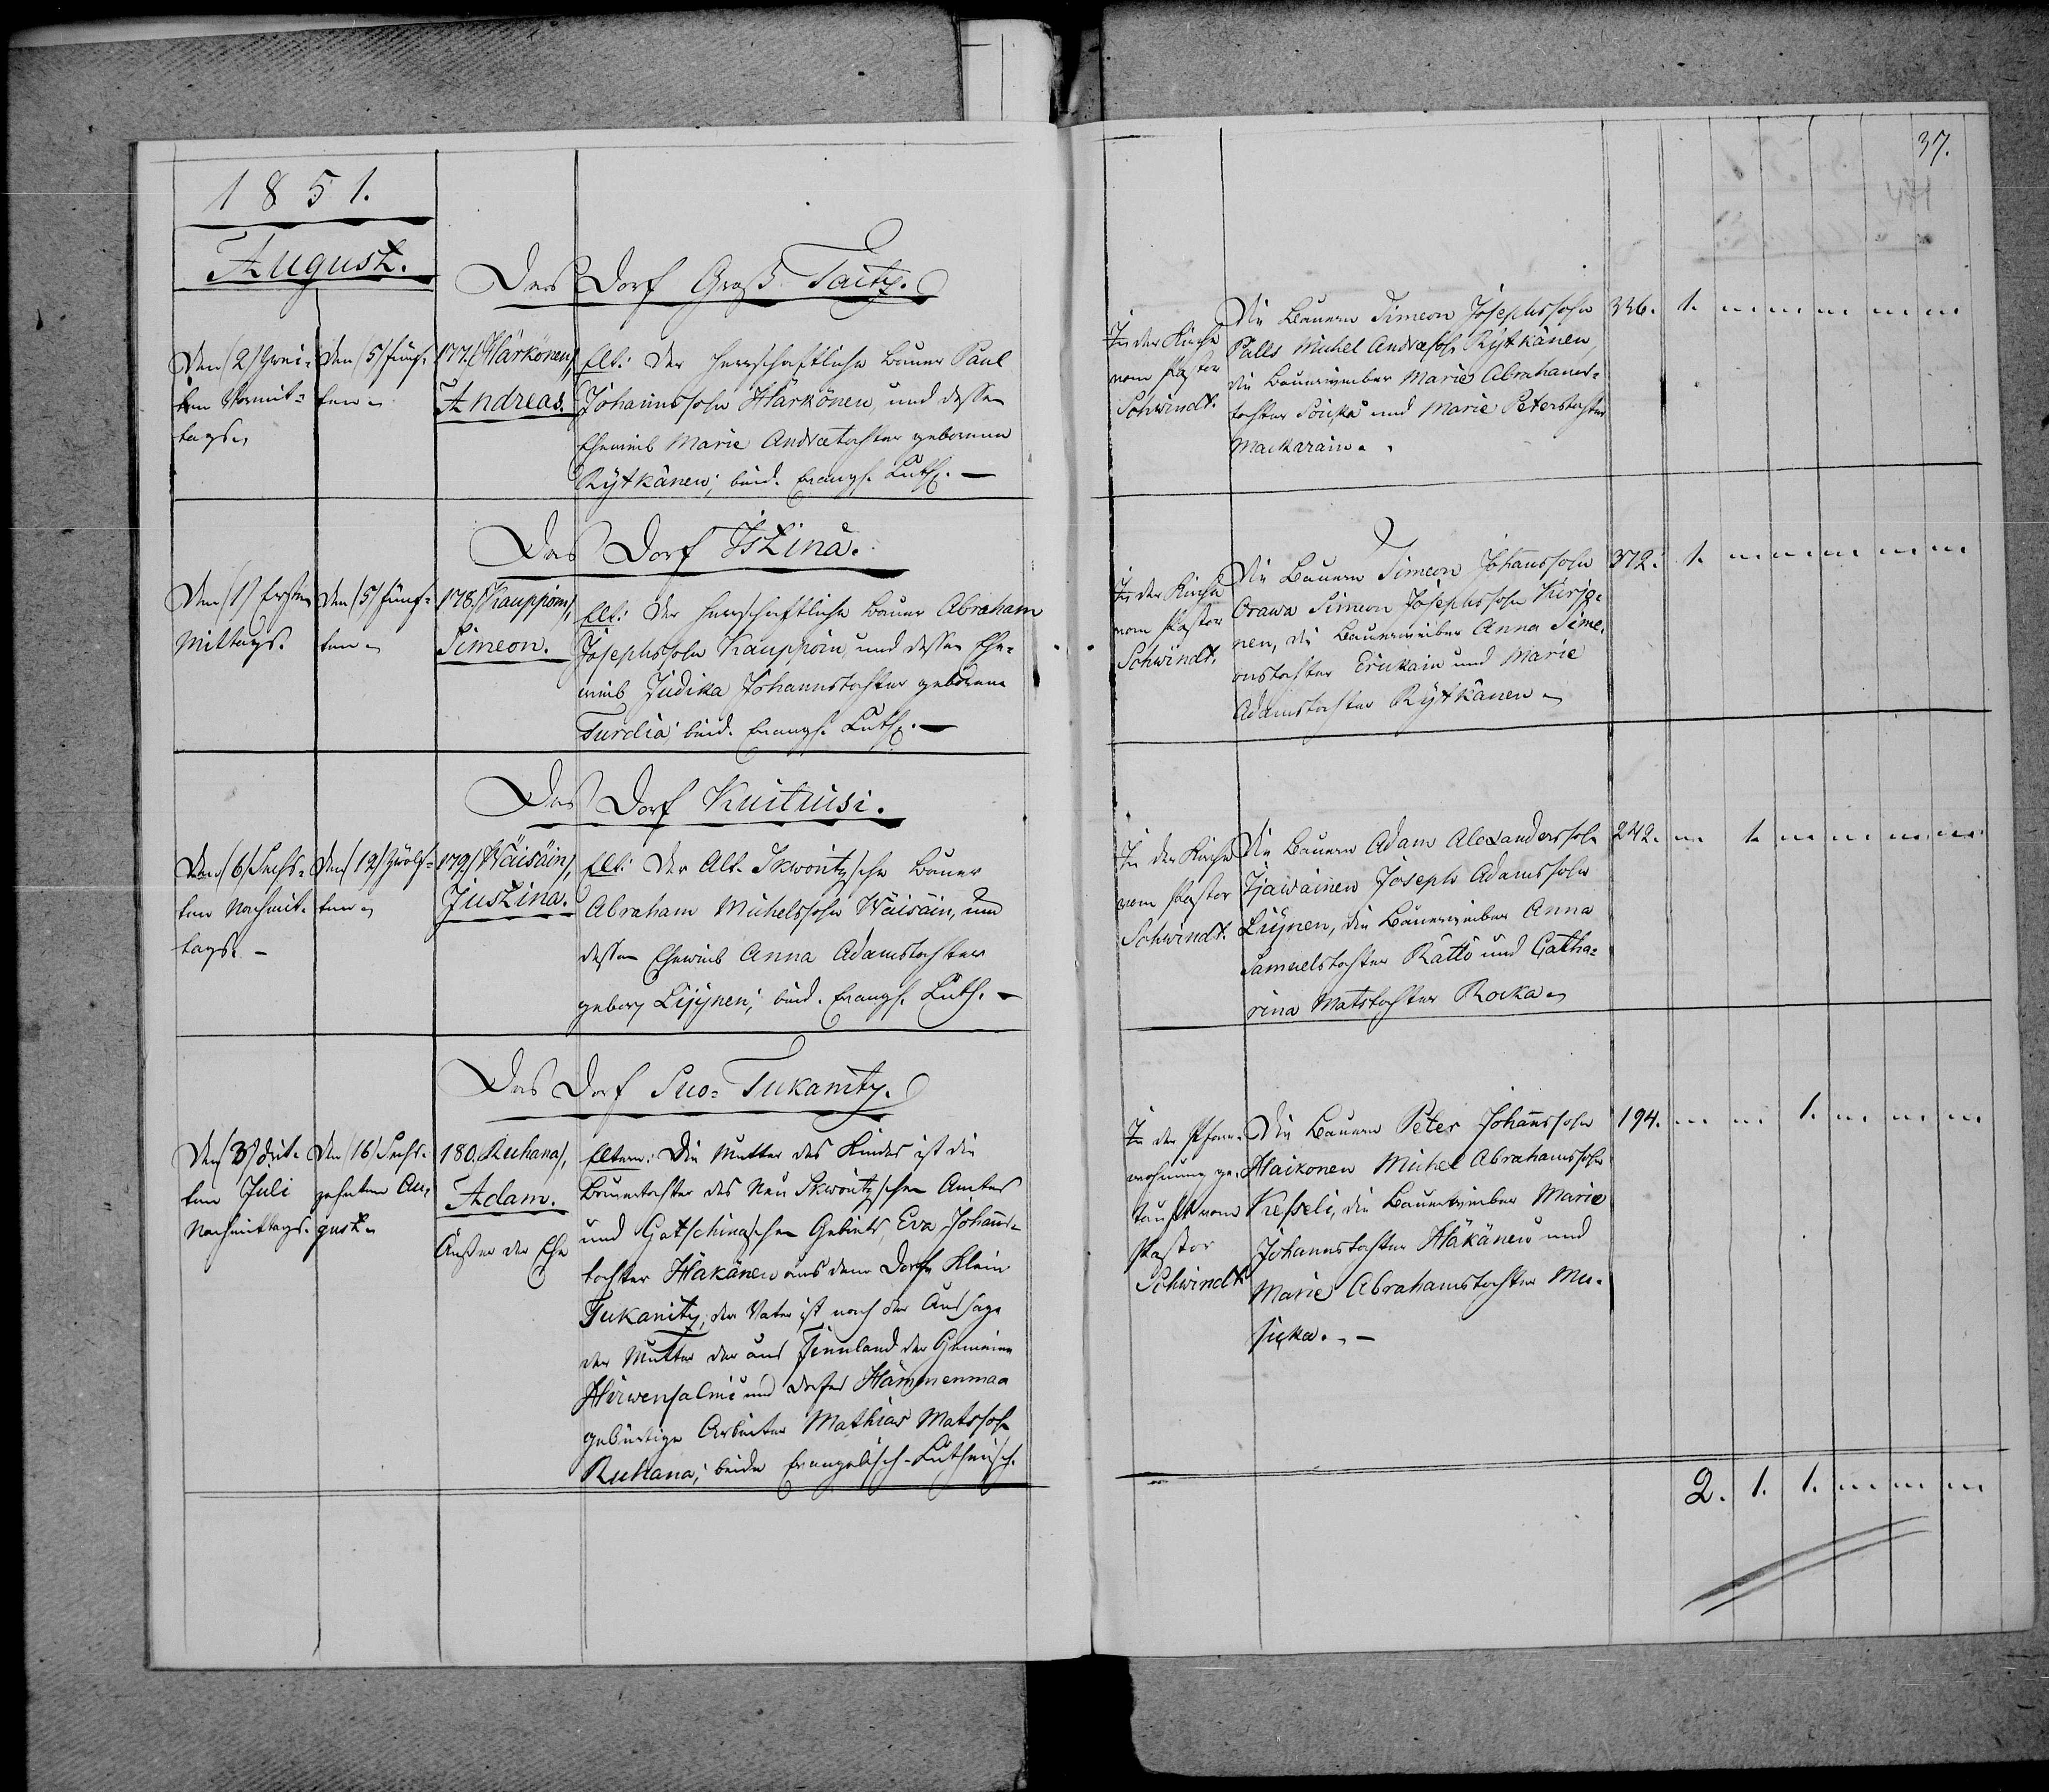 1851.
August.
Das Dorf Groß Taitz.
Den (2) Zwei-
ten Vormit-
tags.
den (5) fünf-
ten.
177. (Härkönen),
Andreas.
Elt: Der herrschaftliche Bauer Paul
Johannssohn Härkönen, und dessen
Eheweib Marie Andreätochter geborenen
Rÿtkänen; beid. Evangl. Luth.
Das Dorf Istinä.
Den (1) Ersten
Mittags.
den (5) fünf-
ten.
178. (Kauppoin),
Simeon.
Elt: Der herrschaftliche Bauer Abraham
Josephssohn Kauppoin, und dessen Ehe-
weib Judika Johannstochter geborene
Turdia; beid. Evangl. Luth.
Das Dorf Kuitusi.
Den (6) Sechs-
ten Nachmit-
tags.
Den (12) Zwölf-
ten.
179. (Wäisäin),
Justina.
Elt: Der Alt-Skworitzsche Bauer
Abraham Michelssohn Wäisäin, und
dessen Eheweib Anna Adamstochter
gebor. Lijÿnen; beid. Evangl. Luth.
Das Dorf Suo-Tukanitz.
Den (3) drit-
ten Juli
Nachmittags.
Den (16) Sechs-
zehnten Au-
gust.
180. Ruhana),
Adam.
Außer der Ehe
Eltern: Die Mutter des Kindes ist die
Bauertochter des Neu Skworitzschen Amtes
und Gatschinaschen Gebiets, Eva Johanns-
tochter Häkänen aus dem Dorfe Klein
Tukanitz, der Vater ist nach der Aussage
der Mutter der aus Finnland der Gemeine
Hirwensalmi und Dorfes Hämmenmaa
gebürtige Arbeiter Mathias Matssohn
Ruhana; beide Evangelisch-Lutherisch.
37.
In der Kirche
vom Pastor
Schwindt.
Die Bauern Simeon Josephssohn
Palls Michel Andreäsohn Rÿtkänen,
die Bauerweiber Marie Abrahams-
tochter Soicka und Marie Peterstochter
Mackarain.
336. 1. " " " " "
In der Kirche
vom Pastor
Schwindt.
Die Bauern Simeon Johannssohn
Orawa Simeon Josephssohn Kirjo-
nen, die Bauerweiber Anna Sime-
onstochter Erickain und Marie
Adamstochter Rÿtkänen.
372. 1. " " " " "
In der Kirche
vom Pastor
Schwindt.
Die Bauern Adam Alexandersohn
Tjäwäinen Joseph Adamssohn
Lijÿnen, die Bauerweiber Anna
Samuelstochter Rättö und Catha-
rina Matstochter Rocka.
242. " 1. " " " "
In der Pfarr-
wohnung ge-
tauft vom
Pastor
Schwindt
Die Bauern Peter Johannssohn
Haikonen Michel Abrahamssohn
Kesseli, die Bauerweiber Marie
Johannstochter Häkänen und
Marie Abrahamstochter Mu-
sicka.
194. " " 1. " " "
2. 1. 1. " " "